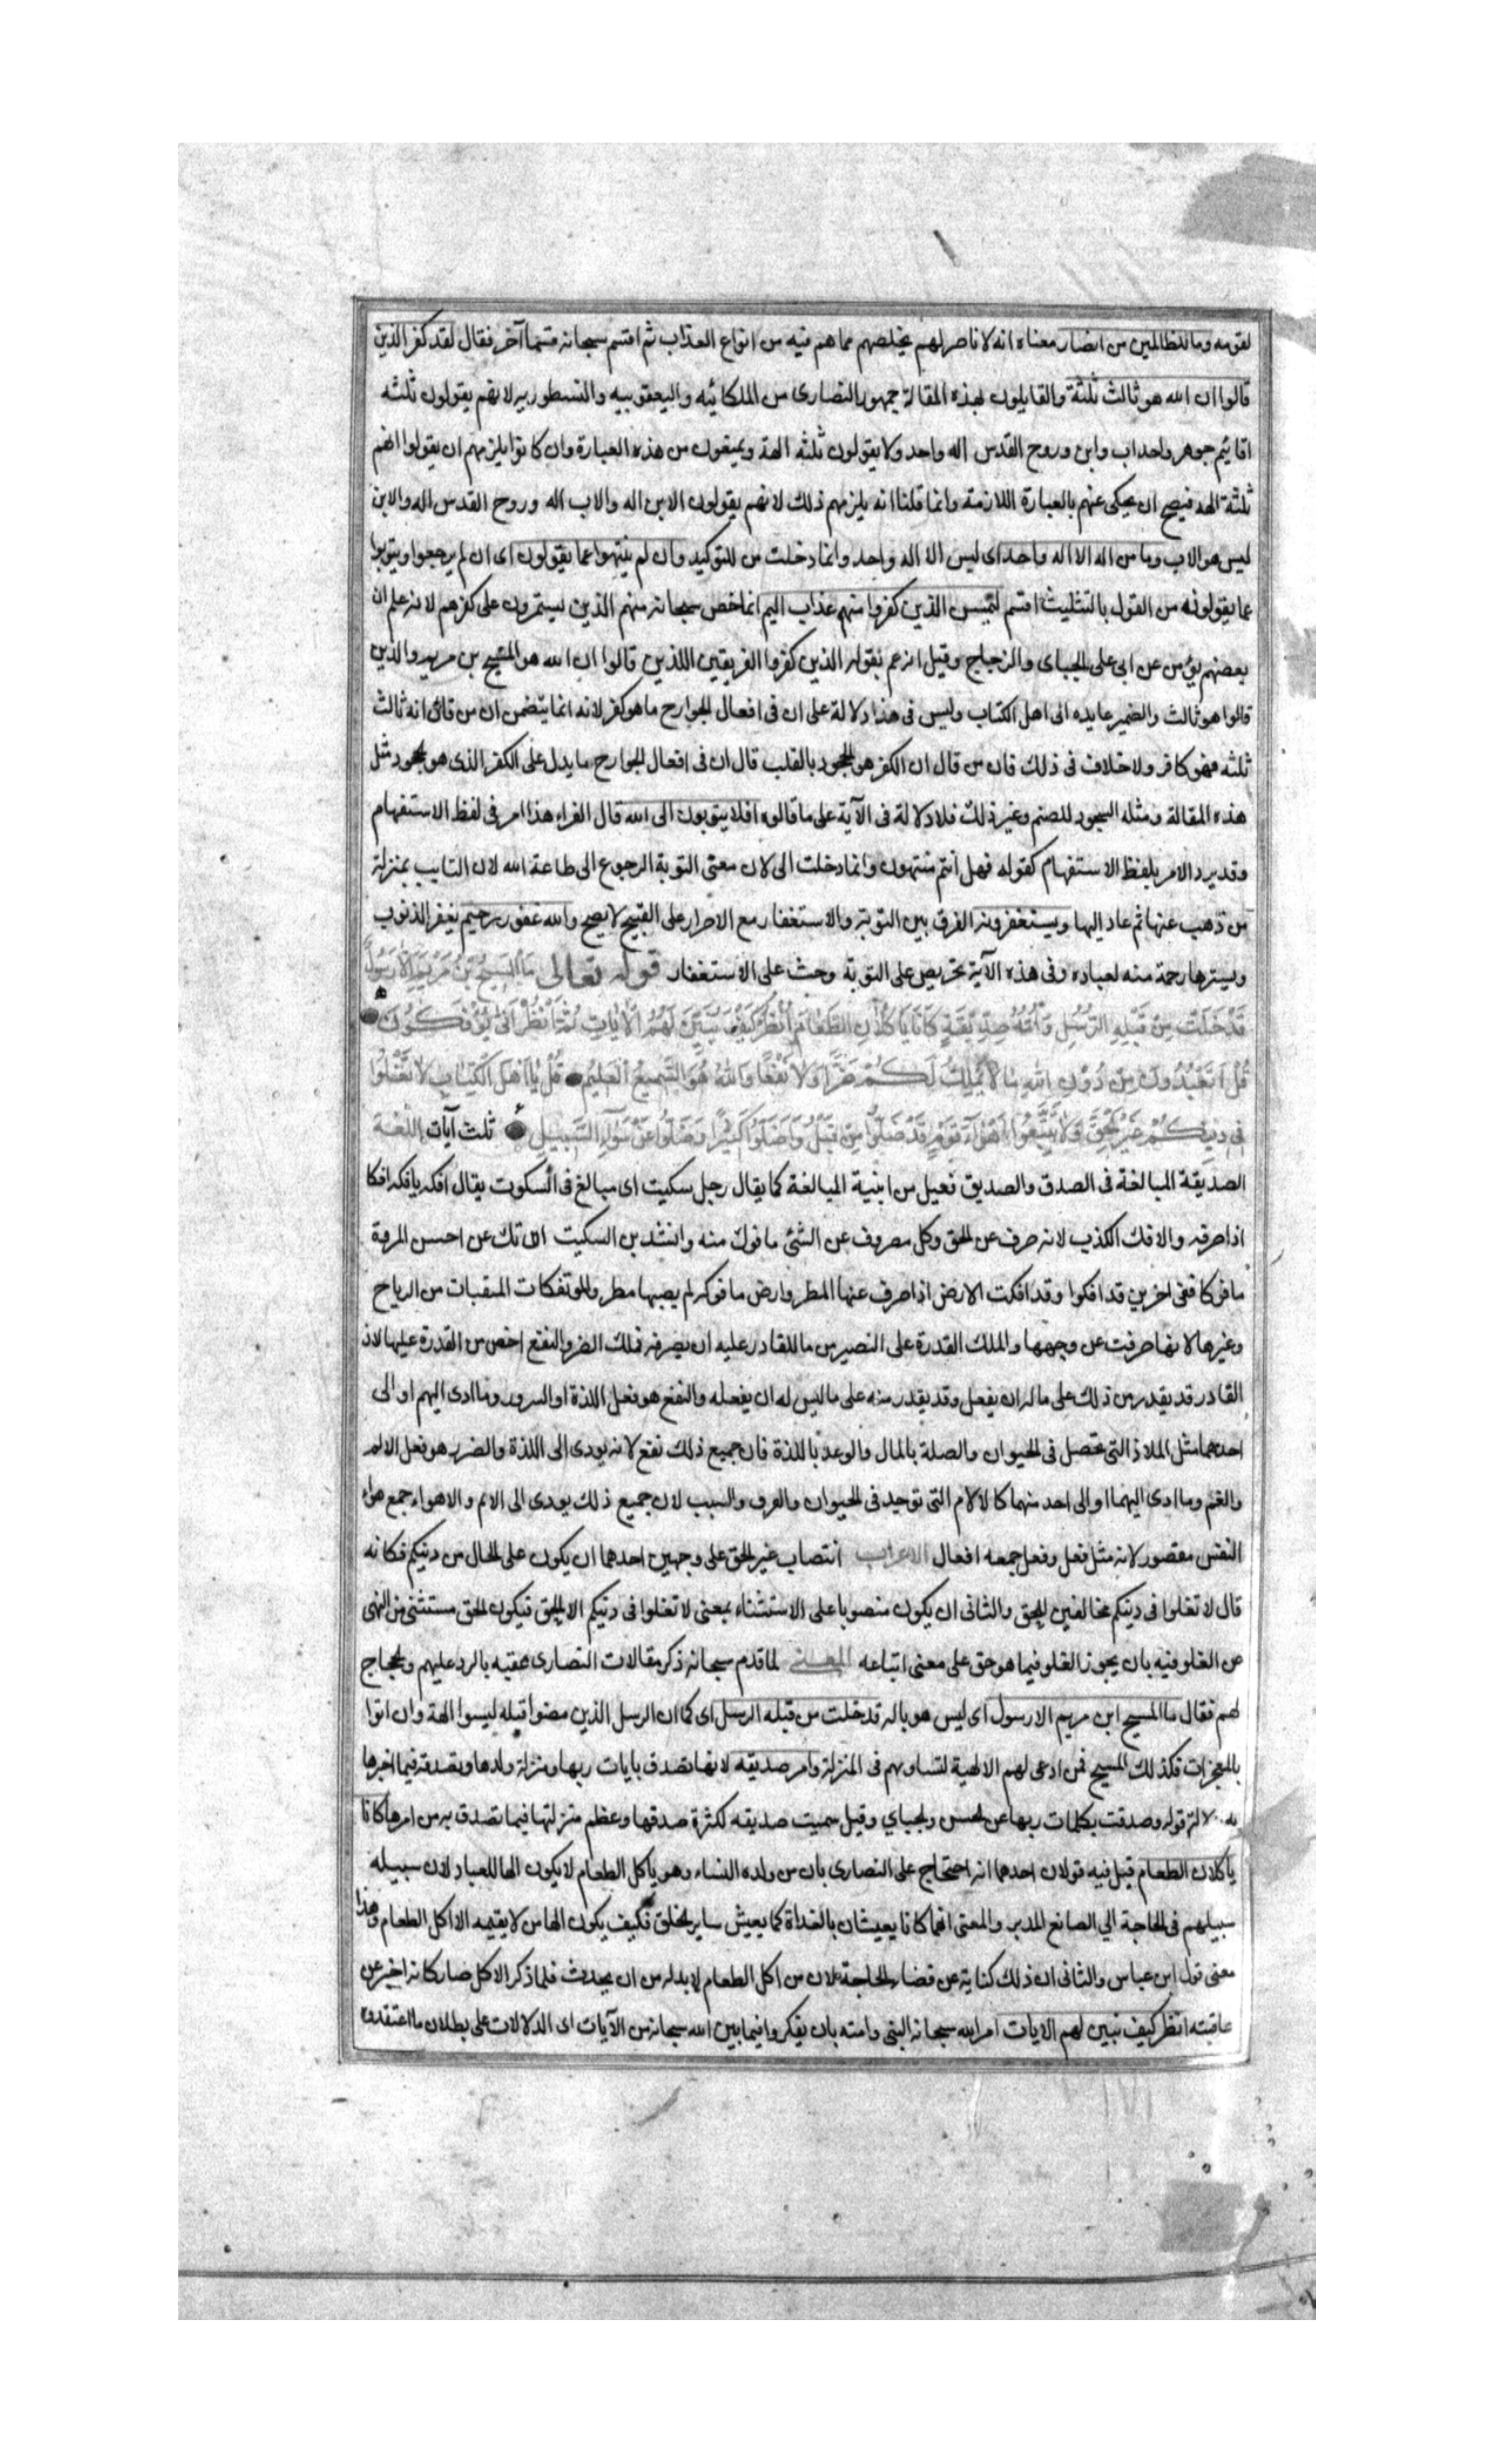 لقومه وما للظالمين من انصار معناه انه لا ناصر لهم يخلصهم مما هم فيه من انواع العذاب ثم اقسم سبحانه قسما آخر فقال لقد كفر الذين
قالوا ان الله هو ثالث ثلثة والقايلون بهذه المقالة جمهور النصارى من الملكائيه واليعقوبيه والنسطوريه لانهم يقولون ثلثه
اقانيم جوهر واحد اب وابن وروح القدس اله واحد ولا يقولون ثلثه الهة ويمنعون من هذه العبارة وان كانوا يلزمهم ان يقولوا انهم
ثلثة الهه فيصح ان يحكى عنهم بالعبارة اللازمة وانما قلنا انه يلزمهم ذلك لانهم يقولون الابن اله والاب اله وروح القدس اله والابن
ليس هو الاب وما من اله الا اله واحد اى ليس الا اله واحد وانما دخلت من للتوكيد وان لم ينتهوا عما يقولون اى ان لم يرجعوا ويتوبوا
عما يقولونه من القول بالتثليث اقسم ليمسن الذين كفروا منهم عذاب اليم انما خص سبحانه منهم الذين يستمرون على كفرهم لانه علم ان
بعضهم يؤمن عن ابى على الجباى والزجاج وقيل انه عم بقوله الذين كفروا الفريقين اللذين قالوا ان الله هو المسيح بن مريم والذين
قالوا هو ثالث والضمير عايده الى اهل الكتاب وليس فى هذا دلالة على ان فى افعال الجوارح ما هو كفر لانه انما يتضمن ان من قال انه ثالث
ثلثه فهو كافر ولا خلاف فى ذلك فان من قال ان الكفر هو الجحود بالقلب قال ان فى افعال الجوارح ما يدل على الكفر الذى هو جحود مثل
هذه المقالة ومثله السجود للصنم وغير ذلك فلا دلالة فى الآية على ما قالوه افلا يتوبون الى الله قال الفراء هذا امر فى لفظ الاستفهام
وقد يرد الامر بلفظ الاستفهام كقوله فهل انتم منتهون وانما دخلت الى لان معنى التوبة الرجوع الى طاعة الله لان التايب بمنزلة
من ذهب عنها ثم عاد اليها ويستغفرونه الفرق بين التوبة والاستغفار مع الاصرار على القبيح لا يصح والله غفور رحيم يغفر الذنوب
ويسترها رحمة منه لعباده وفى هذه الآية تحريص على التوبة وحث على الاستغفار قوله تعالى مَا الْمَسِيحُ بْنُ مَرْيَمَ اِلَّا رَسُولٌ
قَدْ خَلَتْ مِنْ قَبْلِهِ الرُّسُلُ وَاُمُّهُ صِدِّيقَةٌ كَانَا يَأْكُلَانِ الطَّعَامَ اُنْظُرْ كَيْفَ نُبَيِّنُ لَهُمُ الْآيَاتِ ثُمَّ انْظُرْ اَنَّى يُؤْفَكُونَ
قُلْ اَتَعْبُدُونَ مِنْ دُونِ اللهِ مَا لَا يَمْلِكُ لَكُمْ ضَرًّا وَلَا نَفْعًا وَاللهُ هُوَ السَّمِيعُ الْعَلِيمُ قُلْ يَا اَهْلَ الْكِتَابِ لَا تَغْلُوا
فِى دِينِكُمْ غَيْرَ الْحَقِّ وَلَا تَتَّبِعُوا اَهْوَآءَ قَوْمٍ قَدْ ضَلُّوا مِنْ قَبْلُ وَاَضَلُّوا كَثِيرًا وَضَلُّوا عَنْ سَوَآءِ السَّبِيلِ ثلث آيات اللغة
الصديقة المبالغة فى الصدق والصديق فعيل من ابنية المبالغة كما يقال رجل سكيت اى مبالغ فى السكوت يقال افكه يافكه افكا
اذا صرفه والافك الكذب لانه صرف عن الحق وكل مصروف عن الشئ مافوك منه وانشد بن السكيت ان تك عن احسن المروة
مافوكا ففى اخرين قد افكوا وقد افكت الارض اذا صرف عنها المطر وارض مافوكه لم يصبها مطر والموتفكات المنقبات من الرياح
وغيرها لانها صرفت عن وجهها والملك القدرة على التصير من ماللقادر عليه ان يصرفه فملك الضر والنفع اخص من القدرة عليها لان
القادر قد يقدر من ذلك على ماله ان يفعل وقد يقدر منه على ما ليس له ان يفعله والنفع هو فعل اللذة او السرور وما ادى اليهم او الى
احدهما مثل الملاذ التى تحصل فى الحيوان والصلة بالمال والوعد باللذة فان جميع ذلك نفع لانه يودى الى اللذة والضرر هو فعل الالم
والغم وما ادى اليهما او الى احد منهما كالالام التى توجد فى الحيوان والقرف والسب لان جميع ذلك يودى الى الالم والاهواء جمع هوى
النفس مقصور لانه مثل فعل وفعل جمعه افعال الاعراب انتصاب غير الحق على وجهين احدهما ان يكون على الحال من دينكم فكانه
قال لا تغلوا فى دينكم مخالفين للحق والثانى ان يكون منصوبا على الاستثناء بمعنى لا تغلوا فى دينكم الا الحق فيكون الحق مستثنى من النهى
عن الغلو فيه بان يجوز الغلو فيما هو حق على معنى اتباعه المعنى لما قدم سبحانه ذكر مقالات النصارى عقبه بالرد عليهم والحجاج
لهم فقال ما المسيح ابن مريم الا رسول اى ليس هو باله قد خلت من قبله الرسل اى كما ان الرسل الذين مضوا قبله ليسوا الهة وان اتوا
بالمعجزات فكذلك المسيح فمن ادعى لهم الالهية لتساويهم فى المنزلة وامه صديقه لانها تصدق بايات ربها ومنزلة ولدها وتصدقه فيما اخبرها
به لدلالة قوله وصدقت بكلمات ربها عن الحسن والجباي وقيل سميت صديقه لكثرة صدقها وعظم منزلتها فيما تصدق به من امرها كانا
ياكلان الطعام قيل فيه قولان احدهما انه احتجاج على النصارى بان من ولده النساء وهو ياكل الطعام لا يكون الها للعباد لان سبيله
سبيلهم فى الحاجة الي الصانع المدبر والمعنى انهما كانا يعيشان بالغداة كما يعيش ساير الخلق فكيف يكون الها من لا يقيمه الا اكل الطعام وهذا
معنى قول ابن عباس والثانى ان ذلك كناية عن قضاء الحاجة لان من اكل الطعام لا بد له من ان يحدث فلما ذكر الاكل صار كانه اخبر عن
عاقبته انظر كيف نبين لهم الايات امر الله سبحانه النبى وامته بان يفكروا فيما بين الله سبحانه من الآيات اى الدلالات على بطلان ما اعتقدوه